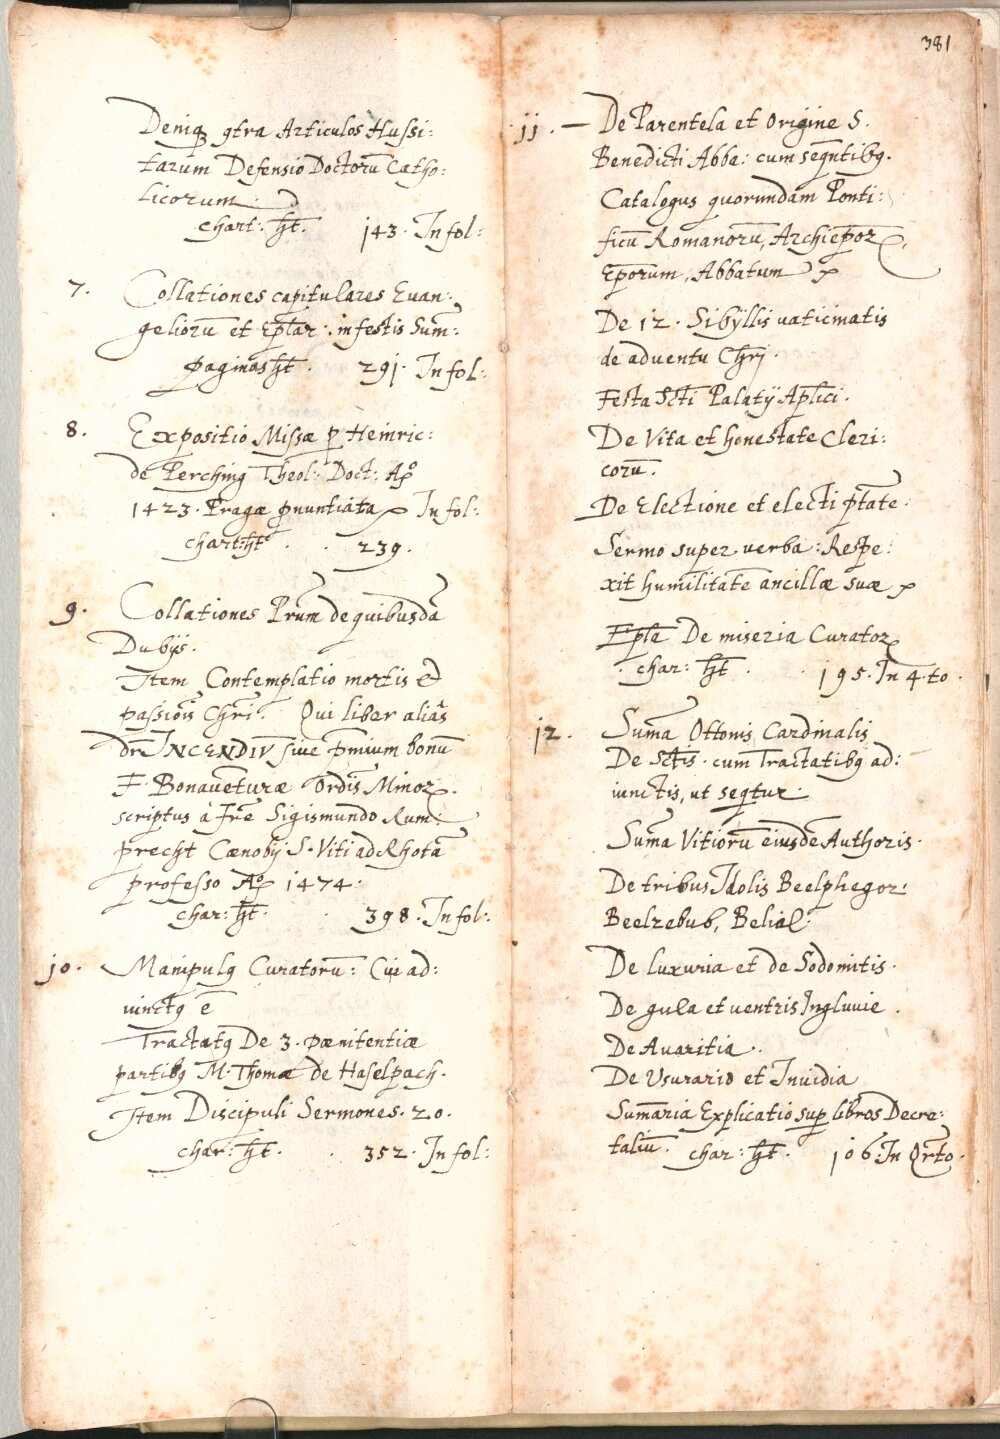 Deniq₃ ɔtra Articulos Hussi:
tarum Defensio Doctorū Catho:
licorum.
chart: ht̄. 143. In fol:
7. Collationes capitulares Euan:
geliorū et Ep̄lar: in festis Sum̄:
paginas ht̄. 291. In fol:
8. Expositio Missæ ꝑ Heinric:
de Perching Theol: Doct: Aº
1423. Pragæ ꝓnuntiata In fol:
chart: ht̄ 239.
9. Collationes Pr̄um de quibusdā
Dubijs.
Item Contemplatio mortis et
passiōis Chr̄i. Qui liber aliàs
dr̄ INCENDIV̄ siue p̄mium bonū
F. Bonauēturæ Ordīs Minoꝝ.
scriptus à fr̄e Sigismundo Rum:
precht Cænobij S. Viti ad Rhotā
professo Aº 1474.
char: ht̄. 398. In fol:
10. Manipulꝯ Curatorū: Cui ad:
iunctꝯ ē
Tractatꝯ De 3. pænitentiæ
partibꝯ M. Thomæ de Haselpach.
Item Discipuli Sermones. 20.
char: ht̄. 352. In fol:
381
11. — De Parentela et Origine S.
Benedicti Abba: cum seqn̄tibꝯ.
Catalogus quorundam Ponti:
ficū Romanorū, Archiep̄oꝝ,
Ep̄orum, Abbatum
De 12. Sibyllis uaticinatis
de aduentu Chr̄i.
Festa Sct̄i Palatij Ap̄lici.
De Vita et honestate Cleri:
corū.
De Electione et electi p̄tate.
Sermo super uerba: Respe:
xit humilitatē ancillæ suæ
Ep̄le De miseria Curatoꝝ
char: ht̄. 195. In 4.to.
12. Sum̄a Ottonis Cardinalis
De Sct̄is. cum Tractatibꝯ ad:
iunctis, ut seqtur.
Sum̄a Vitiorū eiusdē Authoris.
De tribus Idolis Beelphegor:
Beelzebub, Belial.
De luxuria et de Sodomitis.
De gula et uentris Ingluuie.
De Auaritia.
De Usurario et Inuidia
Sum̄aria Explicatio suꝑ libros Decre:
taliū. char: ht̄. 106. In Qr̄to.